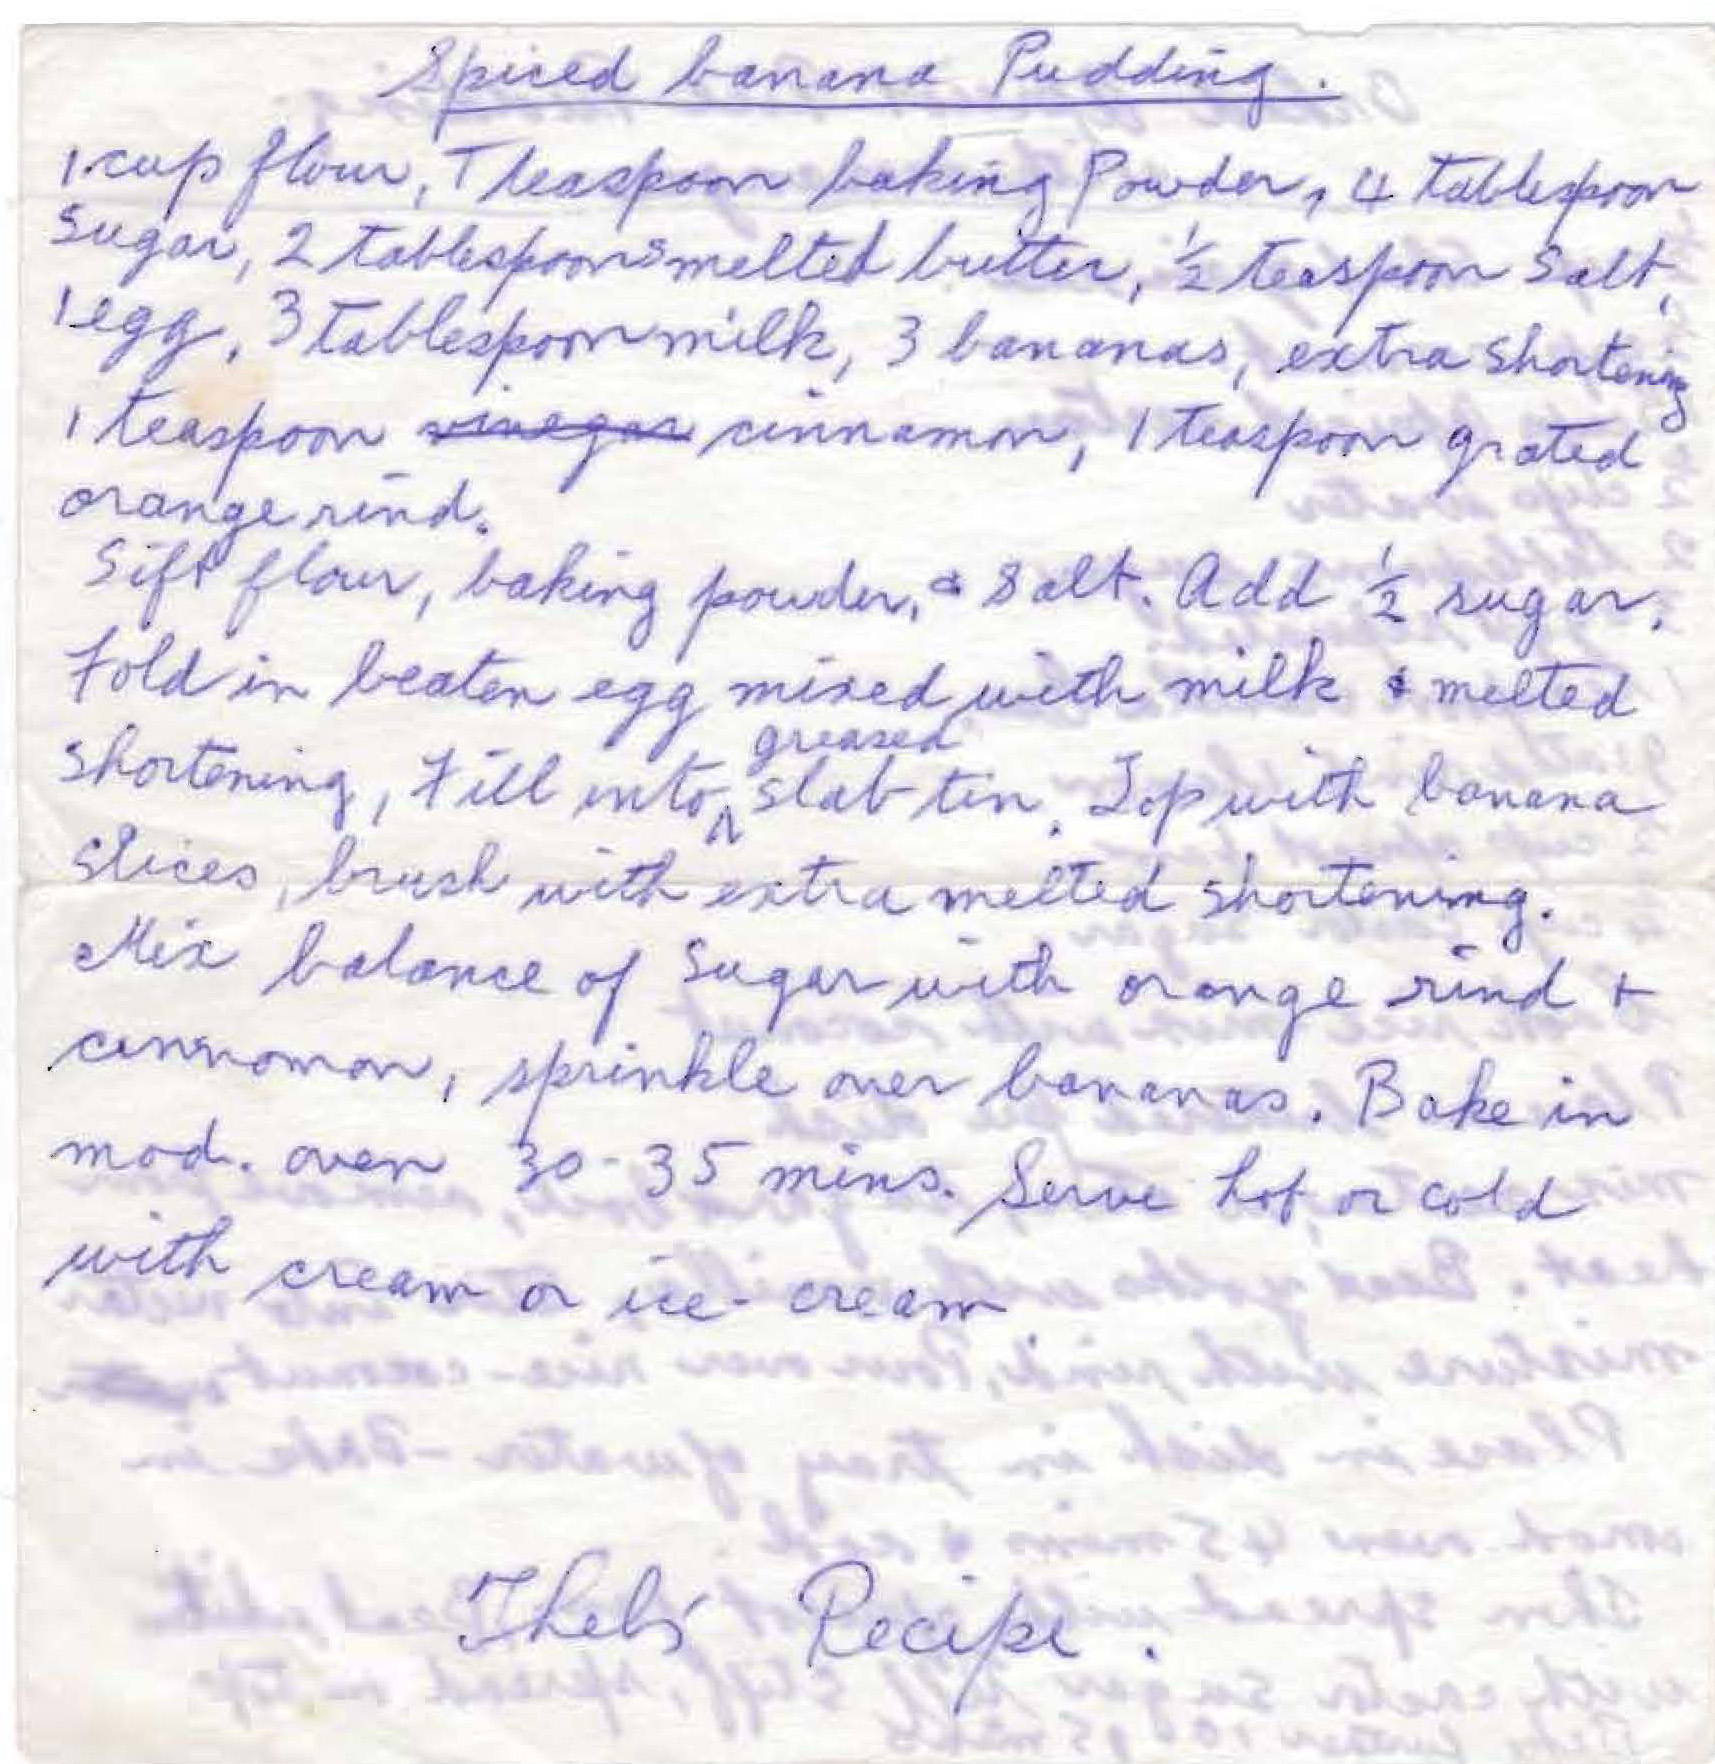 Spiced banana Pudding.
1 cup flour, 1 teaspoon baking Powder, 4 tablespoon
Sugar, 2 tablespoons melted butter, ½ teaspoon Salt,
1 egg, 3 tablespoon milk, 3 bananas, extra shortening
1 teaspoon vinegar cinnamon, 1 teaspoon grated
orange rind.
Sift flour, baking powder, & salt. Add ½ sugar.
Fold in beaten egg mixed with milk & melted
greased
shortening, Fill into ^ slab tin. Top with banana
slices, brush with extra melted shortening.
Mix balance of Sugar with orange rind +
cinnomon, sprinkle over bananas. Bake in
mod. oven 30-35 mins. Serve hot or cold
with cream or ice-cream
Recipe.